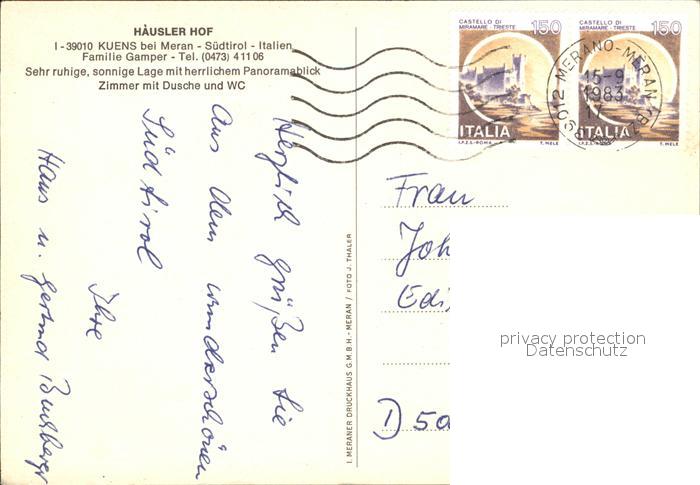 HÄUSLER HOF
I - 39010 KUENS bei Meran - Südtirol - Italien
Familie Gamper - Tel. (0473) 41106
Sehr ruhige, sonnige Lage mit herrlichem Panoramablick
Zimmer mit Dusche und WC
Herzlich grüßen Sie
aus dem wunderschönen
Südtirol
Ihre
Hans u. Gertrud
I. MERANER DRUCKHAUS G.M.B.H. - MERAN / FOTO J. THALER
CASTELLO DI
MIRAMARE - TRIESTE
150
ITALIA
I.P.Z.S. - ROMA
T. MELE
CASTELLO DI
MIRAMARE - TRIESTE
150
ITALIA
I.P.Z.S. - ROMA
T. MELE
39012 MERANO - MERAN (BZ)
15-9
1983
Frau
Joh
Edi
D 50
privacy protection
Datenschutz